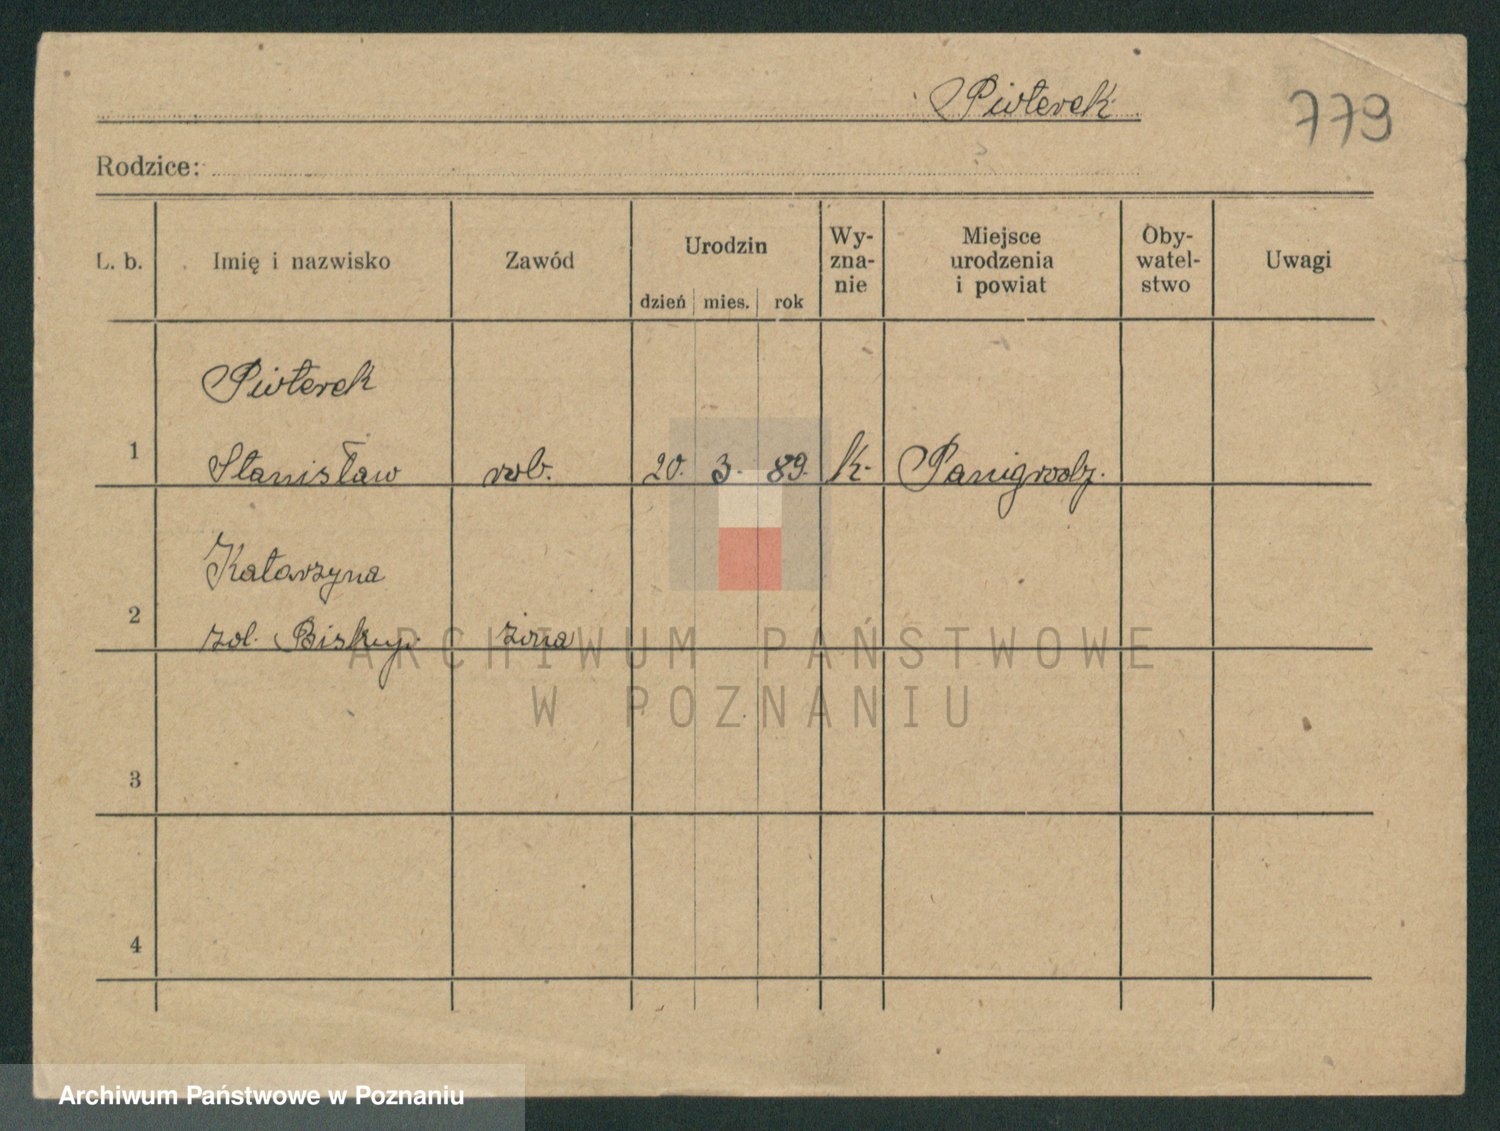 Pioterek
779
Rodzice:
L. b.
Imię i nazwisko
Zawód
Urodzin
dzień mies. rok
Wy-
zna-
nie
Miejsce
urodzenia
i powiat
Oby-
watel-
stwo
Uwagi
Pioterek
1 Stanisław rob. 20. 3. 89. k. Panigrodz.
Katarzyna
2 zol. Biskup. żona
3
4
ARCHIWUM PAŃSTWOWE
W POZNANIU
Archiwum Państwowe w Poznaniu